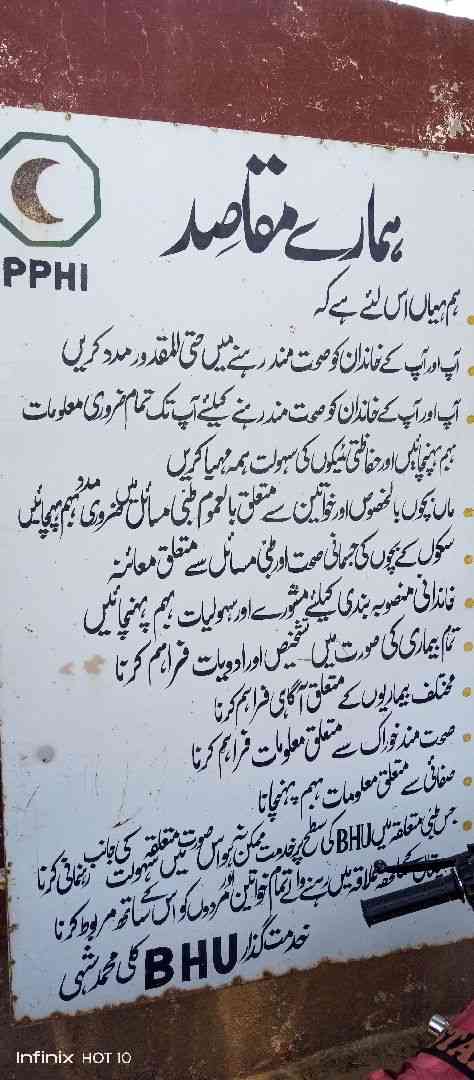 PPHI
ہمارے مقاصد
ہم یہاں اس لئے ہے کہ
آپ اور آپ کے خاندان کو صحت مند رہنے میں حتی المقدور مدد کریں
آپ اور آپ کے خاندان کو صحت مند رہنے کیلئے آپ تک تمام ضروری معلومات
بہم پہنچائیں اور حفاظتی ٹیکوں کی سہولت بہمہ مہیا کریں
ماں بچوں بالخصوص اور خواتین سے متعلق بالعموم طبی مسائل میں ضروری مدد بہم پہنچائیں
سکول کے بچوں کی جسمانی صحت اور طبی مسائل سے متعلق معائنہ
خاندانی منصوبہ بندی کیلئے مشورے اور سہولیات بہم پہنچائیں
تمام بیماری کی صورت میں تشخیص اور ادویات فراہم کرنا
مختلف بیماریوں کے متعلق آگاہی فراہم کرنا
صحت مند خوراک سے متعلق معلومات فراہم کرنا
صفائی سے متعلق معلومات بہم پہنچانا
جس طبی متعلقہ میں BHU کی سطح پر خدمت ممکن نہ ہو اس صورت میں متعلقہ سہولت کی جانب رہنمائی کرنا
علاقہ میں رہنے والے تمام خواتین اور مردوں کو اس کے ساتھ مربوط کرنا
خدمت گذار BHU کلی محمد شہی
Infinix HOT 10